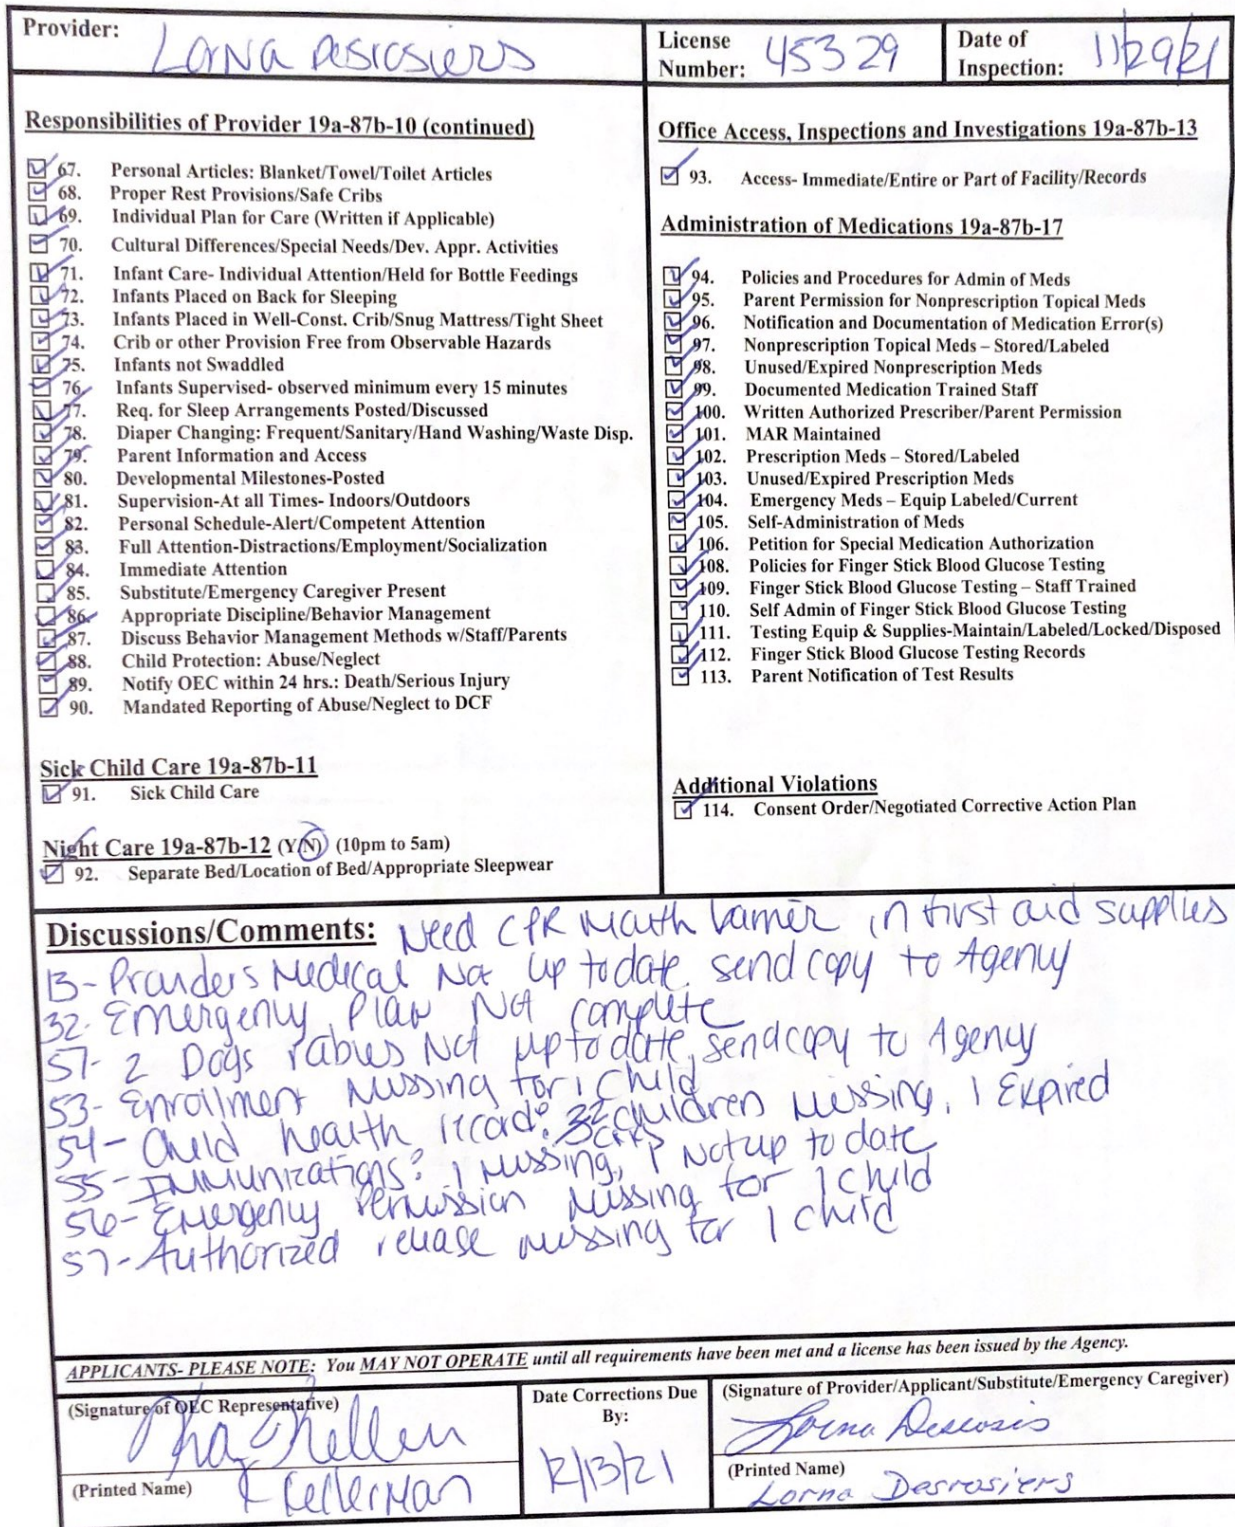 Provider: Lorna Desrosiers
License Number: 45329
Date of Inspection: 11/29/21
Responsibilities of Provider 19a-87b-10 (continued)
67. Personal Articles: Blanket/Towel/Toilet Articles
68. Proper Rest Provisions/Safe Cribs
69. Individual Plan for Care (Written if Applicable)
70. Cultural Differences/Special Needs/Dev. Appr. Activities
71. Infant Care- Individual Attention/Held for Bottle Feedings
72. Infants Placed on Back for Sleeping
73. Infants Placed in Well-Const. Crib/Snug Mattress/Tight Sheet
74. Crib or other Provision Free from Observable Hazards
75. Infants not Swaddled
76. Infants Supervised- observed minimum every 15 minutes
77. Req. for Sleep Arrangements Posted/Discussed
78. Diaper Changing: Frequent/Sanitary/Hand Washing/Waste Disp.
79. Parent Information and Access
80. Developmental Milestones-Posted
81. Supervision-At all Times- Indoors/Outdoors
82. Personal Schedule-Alert/Competent Attention
83. Full Attention-Distractions/Employment/Socialization
84. Immediate Attention
85. Substitute/Emergency Caregiver Present
86. Appropriate Discipline/Behavior Management
87. Discuss Behavior Management Methods w/Staff/Parents
88. Child Protection: Abuse/Neglect
89. Notify OEC within 24 hrs.: Death/Serious Injury
90. Mandated Reporting of Abuse/Neglect to DCF
Sick Child Care 19a-87b-11
91. Sick Child Care
Night Care 19a-87b-12 (Y/N) (10pm to 5am)
92. Separate Bed/Location of Bed/Appropriate Sleepwear
Office Access, Inspections and Investigations 19a-87b-13
93. Access- Immediate/Entire or Part of Facility/Records
Administration of Medications 19a-87b-17
94. Policies and Procedures for Admin of Meds
95. Parent Permission for Nonprescription Topical Meds
96. Notification and Documentation of Medication Error(s)
97. Nonprescription Topical Meds – Stored/Labeled
98. Unused/Expired Nonprescription Meds
99. Documented Medication Trained Staff
100. Written Authorized Prescriber/Parent Permission
101. MAR Maintained
102. Prescription Meds – Stored/Labeled
103. Unused/Expired Prescription Meds
104. Emergency Meds – Equip Labeled/Current
105. Self-Administration of Meds
106. Petition for Special Medication Authorization
108. Policies for Finger Stick Blood Glucose Testing
109. Finger Stick Blood Glucose Testing – Staff Trained
110. Self Admin of Finger Stick Blood Glucose Testing
111. Testing Equip & Supplies-Maintain/Labeled/Locked/Disposed
112. Finger Stick Blood Glucose Testing Records
113. Parent Notification of Test Results
Additional Violations
114. Consent Order/Negotiated Corrective Action Plan
Discussions/Comments: Need CPR Mouth barrier in first aid supplies
13- Providers Medical Not up to date. send copy to Agency
32- Emergency Plan Not complete
57- 2 Dogs rabies Not up to date, send copy to Agency
53- Enrollment Missing for 1 child
54- Child health record: children missing, 1 Expired
55- Immunizations: 1 missing, 1 Not up to date
56- Emergency Permission Missing for 1 child
57- Authorized release missing for 1 child
APPLICANTS- PLEASE NOTE: You MAY NOT OPERATE until all requirements have been met and a license has been issued by the Agency.
(Signature of OEC Representative)
(Printed Name) K Kellerman
Date Corrections Due By:
12/13/21
(Signature of Provider/Applicant/Substitute/Emergency Caregiver)
(Printed Name)
Lorna Desrosiers